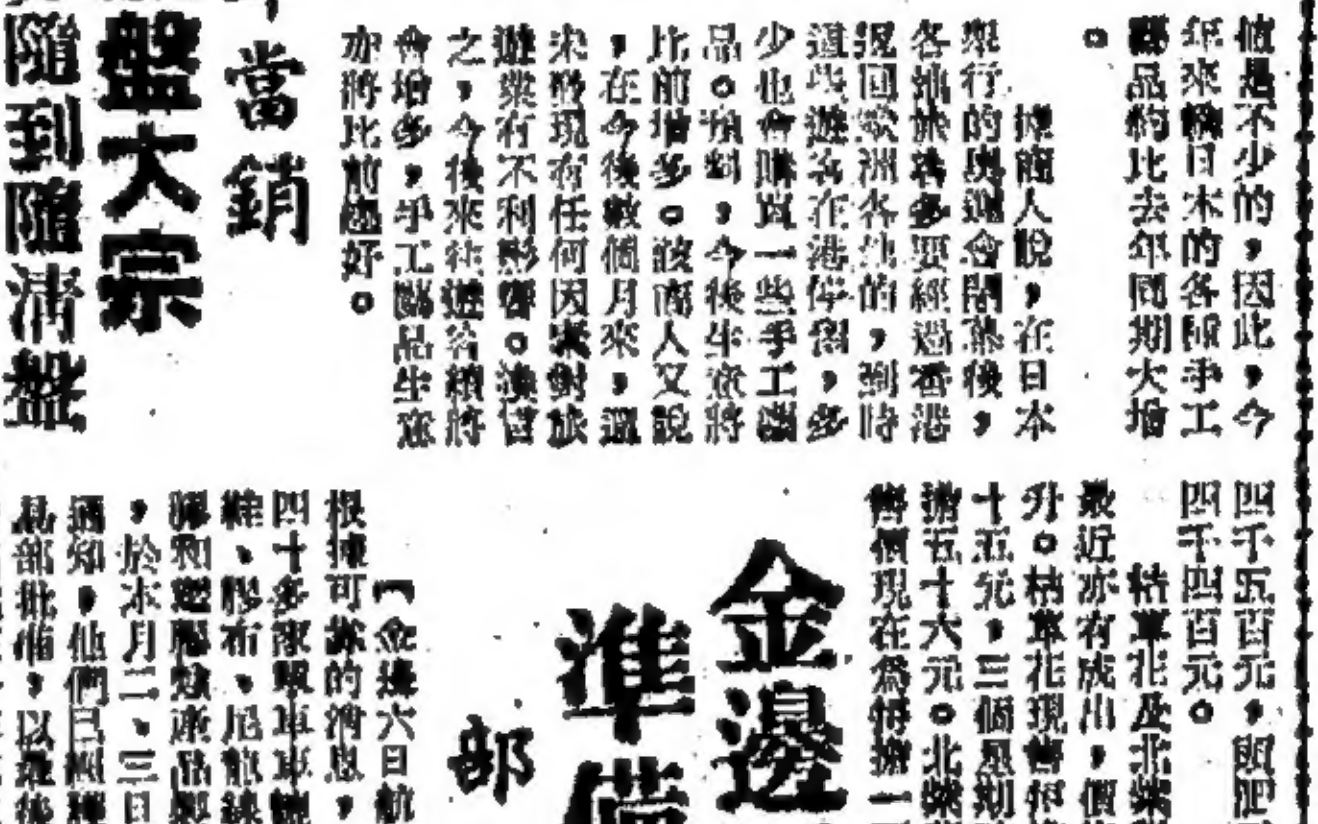 值是不少的，因此，今
年來輸日本的各種手工
藝品約比去年同期大增
。
據商人說，在日本
舉行的奧運會閉幕後，
各地旅客多要經過香港
返回歐洲各地的，到時
這些遊客在港停留，多
少也會購買一些手工藝
品。預料，今後生意將
比前增多。該商人又說
，在今後數個月來，還
未發現有任何因素對旅
遊業有不利影響。換言
之，今後來往遊客續將
會增多，手工藝品生意
亦將比前趨好。
當銷
盤大宗
隨到隨清盤
四千五百元，
四千四百元。
桔草花及北
最近亦有成出，價
升。桔草花現售
十五元，三個星期
擔五十六元。北
售價現在為每擔一
金邊
準備
部
【金邊六日航
根據可靠的消息，
四十多家單車車
、膠布、尼龍線
和塑膠類產品
，於本月二、三日
通知，他們已
部批准，以